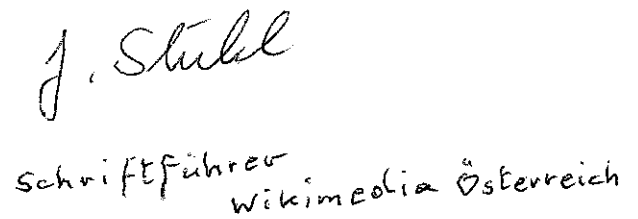 J.
Schriftführer
Wikimedia Österreich